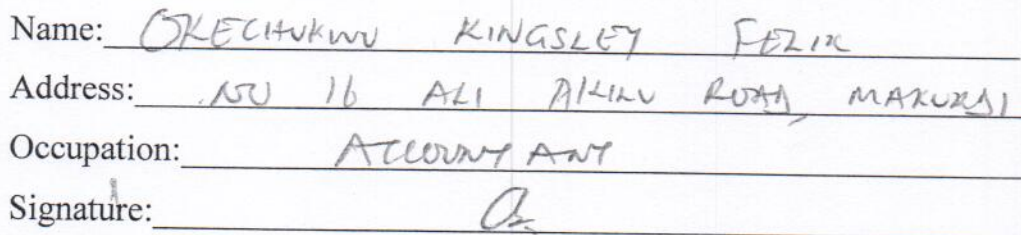 Name: OKECHUKWU KINGSLEY FELIX
Address: NO 16 ALI AKILU ROAD, MAKURDI
Occupation: ACCOUNTANT
Signature: